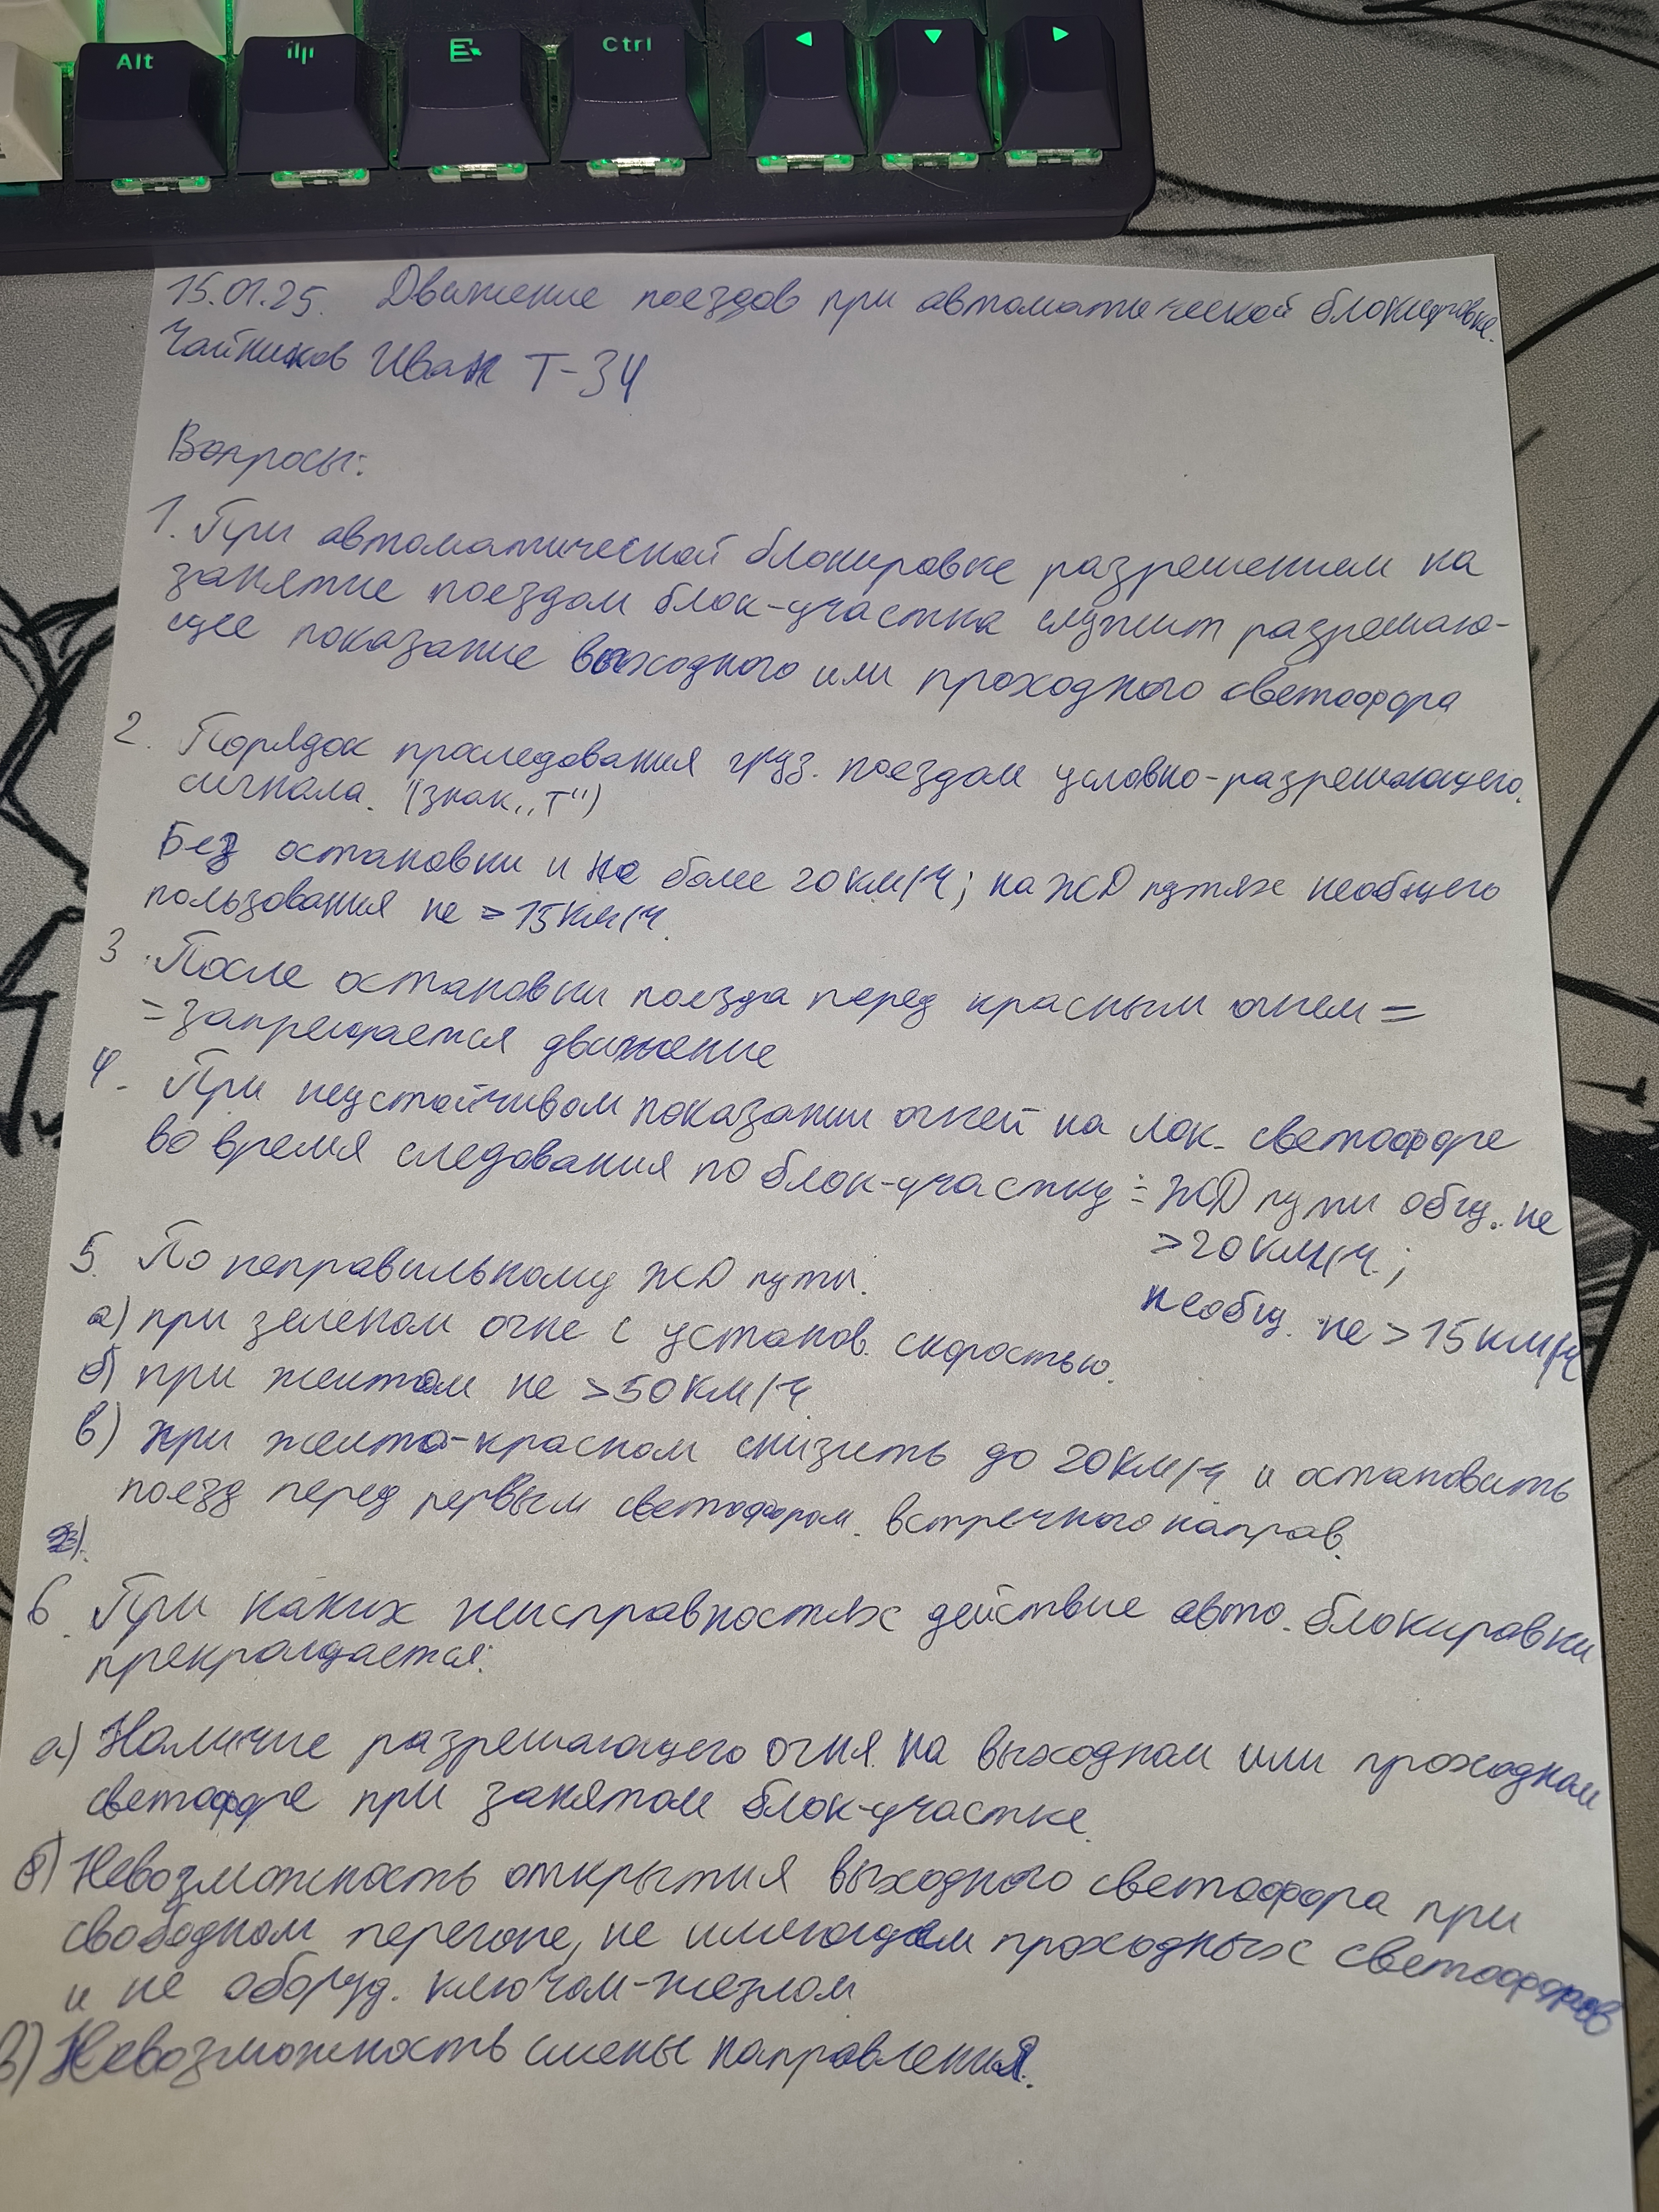 Alt
Ctrl
15.01.25. Движение поездов при автоматической блокировке.
Чайников Иван Т-34
Вопросы:
1. При автоматической блокировке разрешением на
занятие поездом блок-участка служит разрешаю-
щее показание выходного или проходного светофора
2. Порядок проследования груз. поездом условно-разрешающего
сигнала. (знак „Т")
Без остановки и не более 20 км/ч; на ЖД путях необщего
пользования не > 15 км/ч.
3. После остановки поезда перед красным огнем =
= запрещается движение
4. При неустойчивом показании огней на лок. светофоре
во время следования по блок-участку = ЖД пути общ. не
> 20 км/ч.;
необщ. не > 15 км/ч
5. По неправильному ЖД пути.
а) при зеленом огне с установ. скоростью.
б) при желтом не > 50 км/ч
в) при желто-красном снизить до 20 км/ч и остановить
поезд перед первым светофором. встречного направ.
6. При каких неисправностях действие авто. блокировки
прекращается:
а) Наличие разрешающего огня на выходном или проходном
светофоре при занятом блок-участке.
б) Невозможность открытия выходного светофора при
свободном перегоне, не имеющем проходных светофоров
и не оборуд. ключом-жезлом
в) Невозможность смены направления.